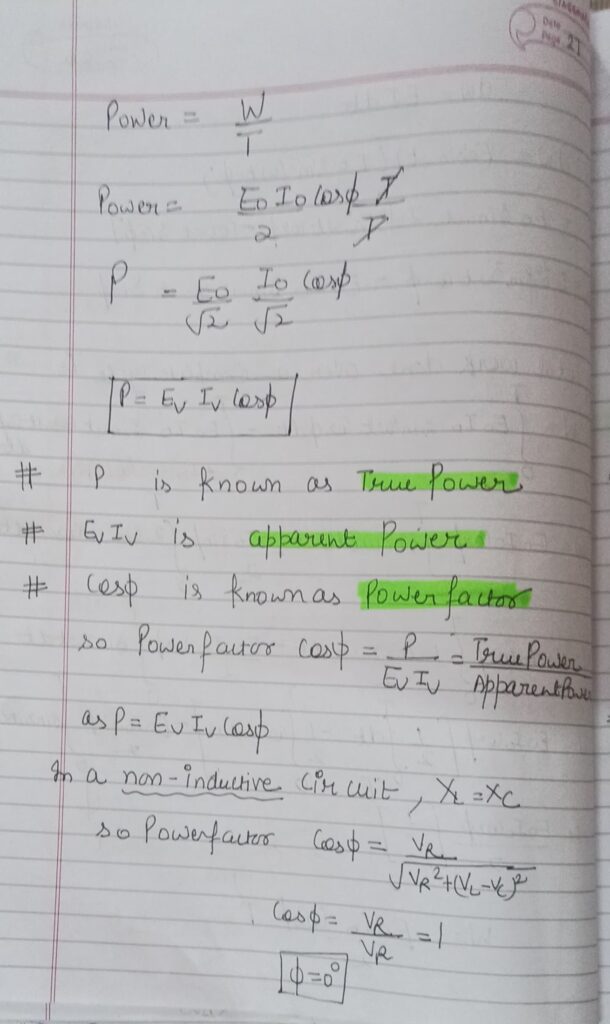 CLASSMATE
Date
Page 27
Power = W/T
Power = E₀ I₀ cosϕ T / 2 T
P = E₀/√2 I₀/√2 cosϕ
P = Eᵥ Iᵥ cosϕ
# P is known as True Power
# Eᵥ Iᵥ is apparent Power
# Cosϕ is known as Power factor
so Power factor cosϕ = P/(Eᵥ Iᵥ) = True Power/Apparent Power
as P = Eᵥ Iᵥ cosϕ
In a non-inductive circuit, X_L = X_C
so Power factor Cosϕ = V_R/√(V_R² + (V_L - V_C)²)
Cosϕ = V_R/V_R = 1
ϕ = 0°